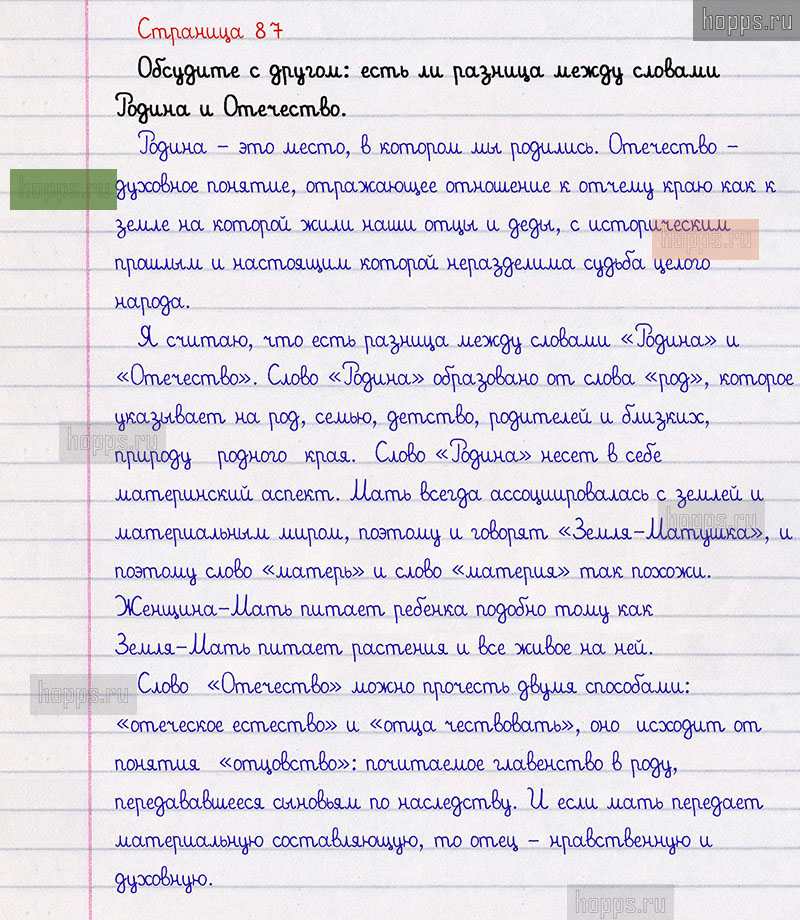 hopps.ru
Страница 87
Обсудите с другом: есть ли разница между словами
Родина и Отечество.
Родина – это место, в котором мы родились. Отечество –
hopps.ru
духовное понятие, отражающее отношение к отчему краю как к
земле на которой жили наши отцы и деды, с историческим
hopps.ru
прошлым и настоящим которой неразделима судьба целого
народа.
Я считаю, что есть разница между словами «Родина» и
«Отечество». Слово «Родина» образовано от слова «род», которое
указывает на род, семью, детство, родителей и близких,
hopps.ru
природу родного края. Слово «Родина» несет в себе
материнский аспект. Мать всегда ассоциировалась с землей и
hopps.ru
материальным миром, поэтому и говорят «Земля-Матушка», и
поэтому слово «матерь» и слово «материя» так похожи.
Женщина-Мать питает ребенка подобно тому как
Земля-Мать питает растения и все живое на ней.
hopps.ru
Слово «Отечество» можно прочесть двумя способами:
«отеческое естество» и «отца чествовать», оно исходит от
понятия «отцовство»: почитаемое главенство в роду,
передававшееся сыновьям по наследству. И если мать передает
материальную составляющую, то отец – нравственную и
духовную.
hopps.ru